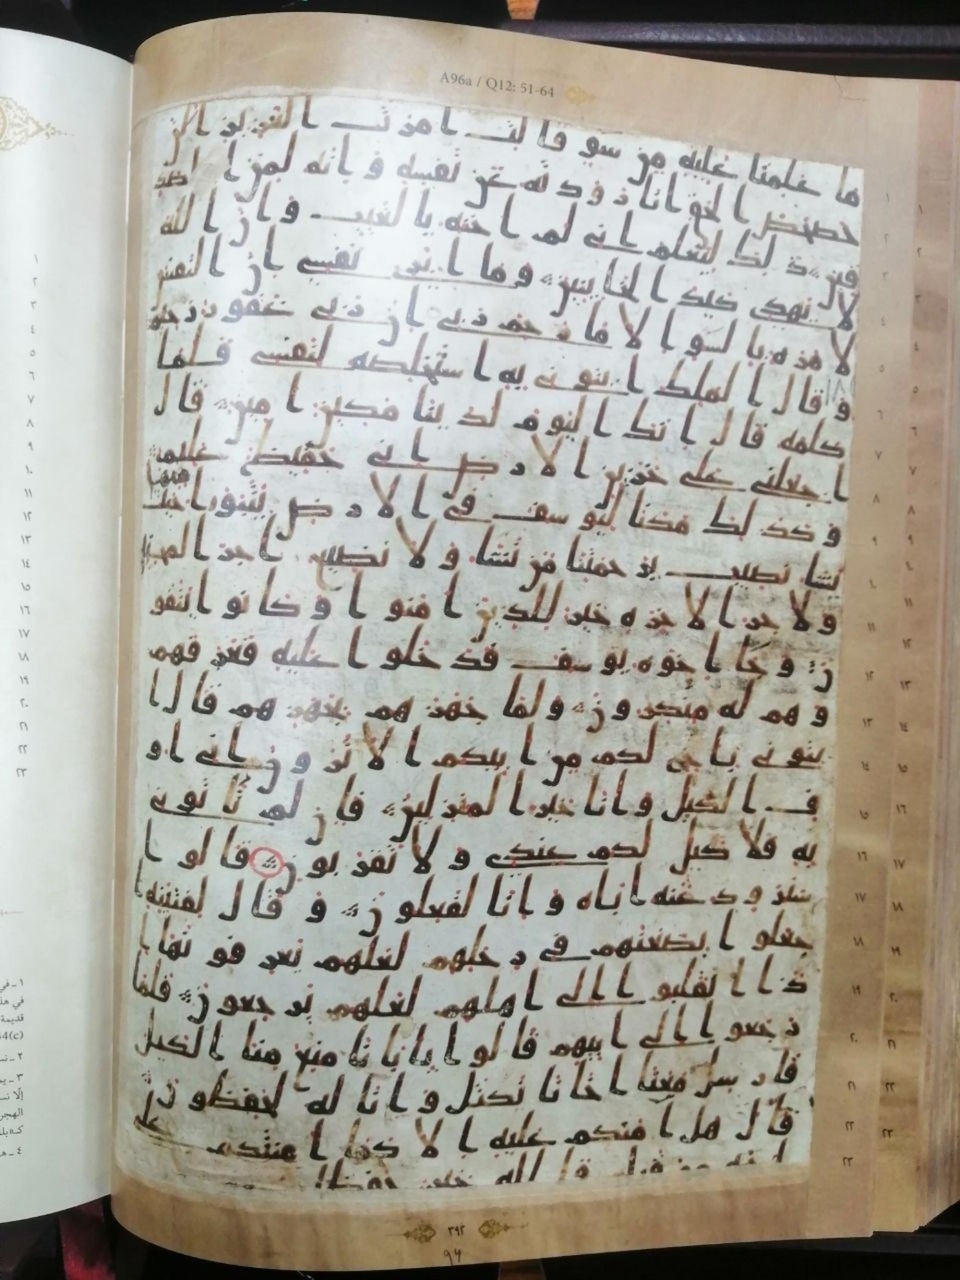 A96a / Q12: 51-64
ما علمنا عليه من سو قالت امرات العزيز الن
حصحص الحق انا رودته عن نفسه وانه لمن الصد
قين ذلك ليعلم اني لم اخنه بالغيب وان الله
لا يهدي كيد الخاينين وما ابري نفسي ان النفس
لامره بالسو الا ما رحم ربي ان ربي غفور رحيم
وقال الملك ايتوني به استخلصه لنفسي فلما
كلمه قال انك اليوم لدينا مكين امين قال
اجعلني على خزين الارض اني حفيظ عليم
وكذلك مكنا ليوسف في الارض يتبوا منها حيث
يشا نصيب برحمتنا من نشا ولا نضيع اجر المحسنين
ولاجر الاخره خير للذين امنوا وكانوا يتقو
ن وجا اخوه يوسف فدخلوا عليه فعرفهم
وهم له منكرون ولما جهزهم بجهزهم قال ا
يتوني باخ لكم من ابيكم الا ترون اني او
ف الكيل وانا خير المنزلين فان لم تاتوني
به فلا كيل لكم عندي ولا تقربون قالوا
سنرود عنه اباه وانا لفعلون وقال لفتينه ا
جعلوا بضعتهم في رحلهم لعلهم يعرفونها ا
ذا انقلبوا الى اهلهم لعلهم يرجعون فلما
رجعوا الى ابيهم قالوا يابانا منع منا الكيل
فارسل معنا اخانا نكتل وانا له لحفظون
قال هل امنكم عليه الا كما امنتكم على
اخيه من قبل فالله خير حفظا
٣٩٢
٩٦